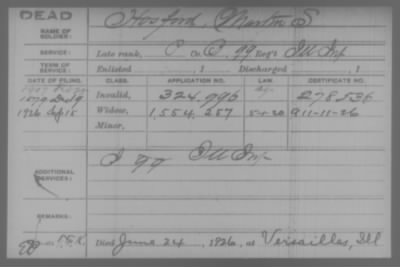 DEAD
NAME OF SOLDIER: Hosford, Martin S
SERVICE: Late rank, Co. B, 99 Reg't Ill Inf
TERM OF SERVICE: Enlisted , 1 Discharged , 1
DATE OF FILING. CLASS. APPLICATION NO. LAW. CERTIFICATE NO.
1879 Invalid, 324.996 278.536
1926 Sep 15 Widow, 1,554,287 5-1-20 911-11-26
Minor,
ADDITIONAL SERVICES: I 99 Ill Inf
REMARKS:
Died June 24, 1926, at Versailles, Ill